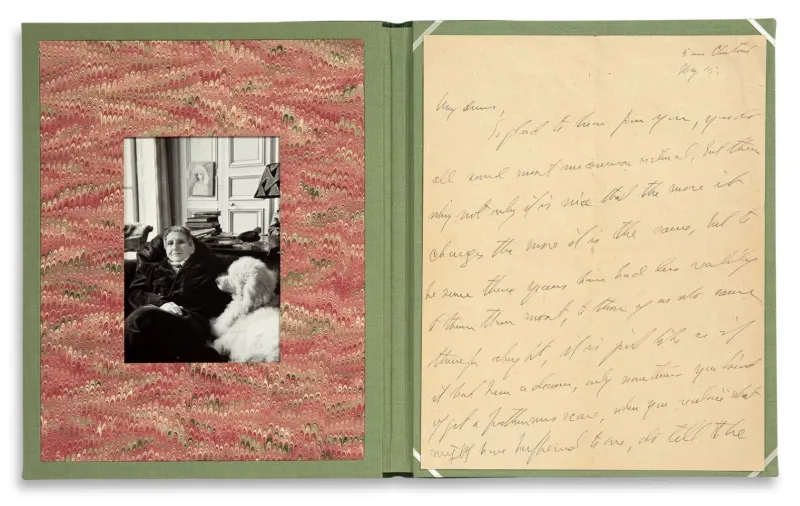 5 rue Christine
My dears,
So glad to hear from you, you do
all sound most natural, but then
why not only it is nice that the more it
changes the more it is the same, but to
be sure these years have had less reality
to them than most, to those of us who came
through alright, it is just like as if
it had been a dream, only sometimes you kind
of get a posthumous scare, when you realise what
might have happened to one, do tell the